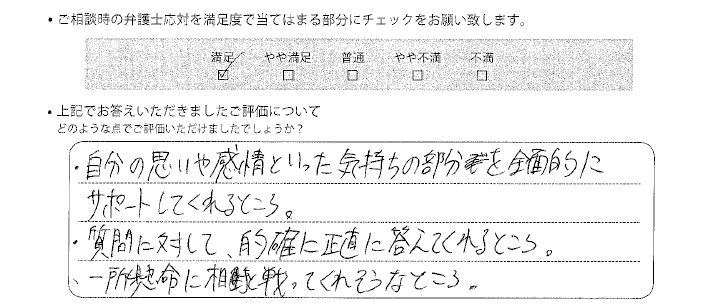 ・ご相談時の弁護士応対を満足度で当てはまる部分にチェックをお願い致します。
満足 やや満足 普通 やや不満 不満
・上記でお答えいただきましたご評価について
どのような点でご評価いただけましたでしょうか？
・自分の思いや感情といった気持ちの部分を全面的に
サポートしてくれるところ。
・質問に対して、的確に正直に答えてくれるところ。
、一所懸命に相手と戦ってくれそうなところ。